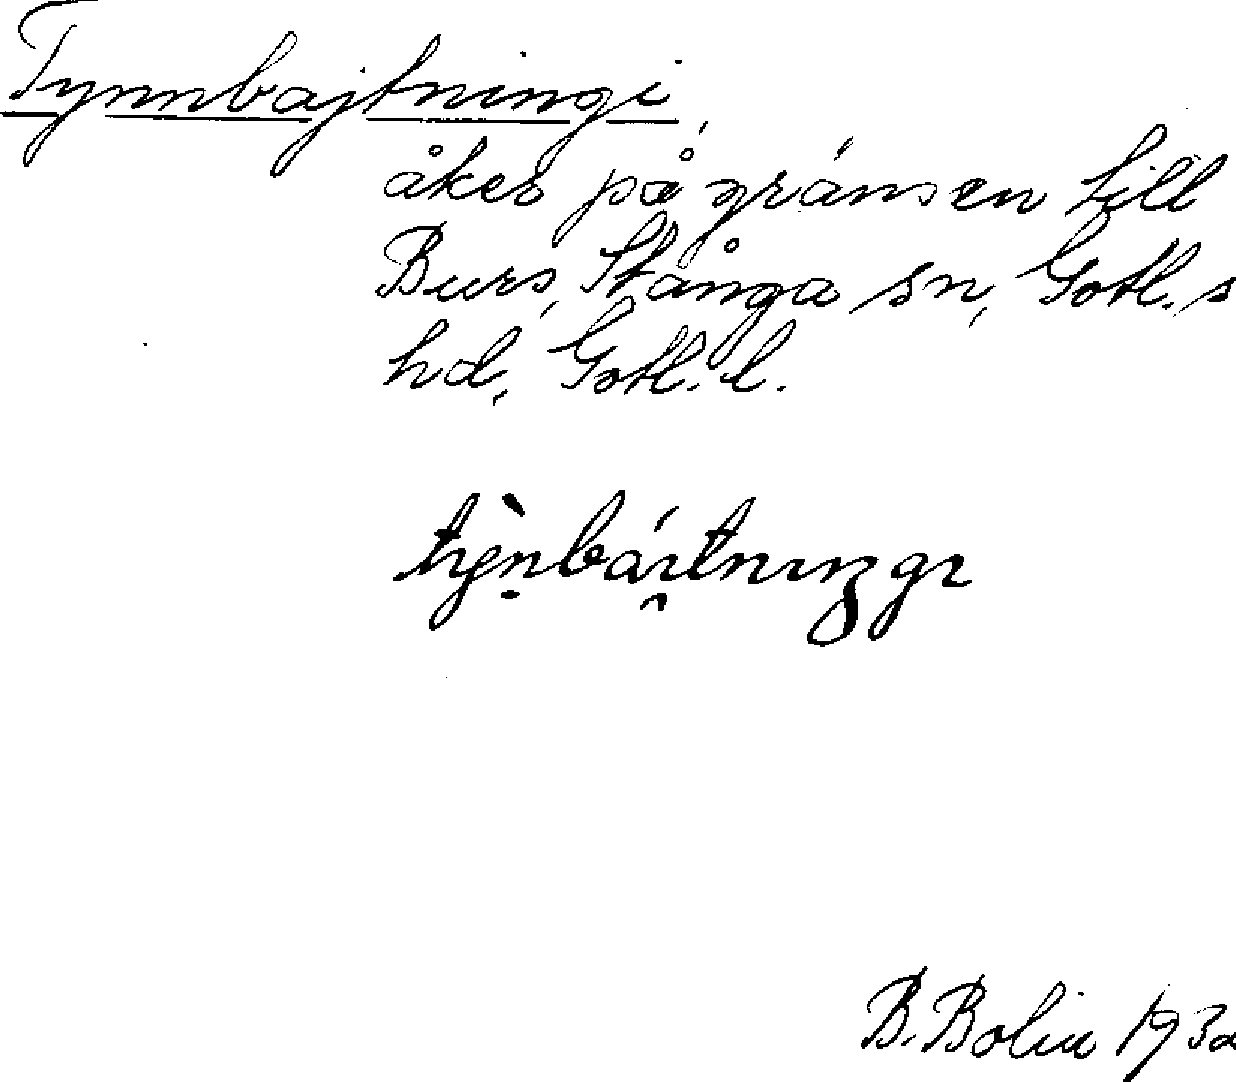 Tynnbajtningi,
åker på gränsen till
Burs, Stånga sn, Gotl. s
hd, Gotl. l.
B. Bolin 1932